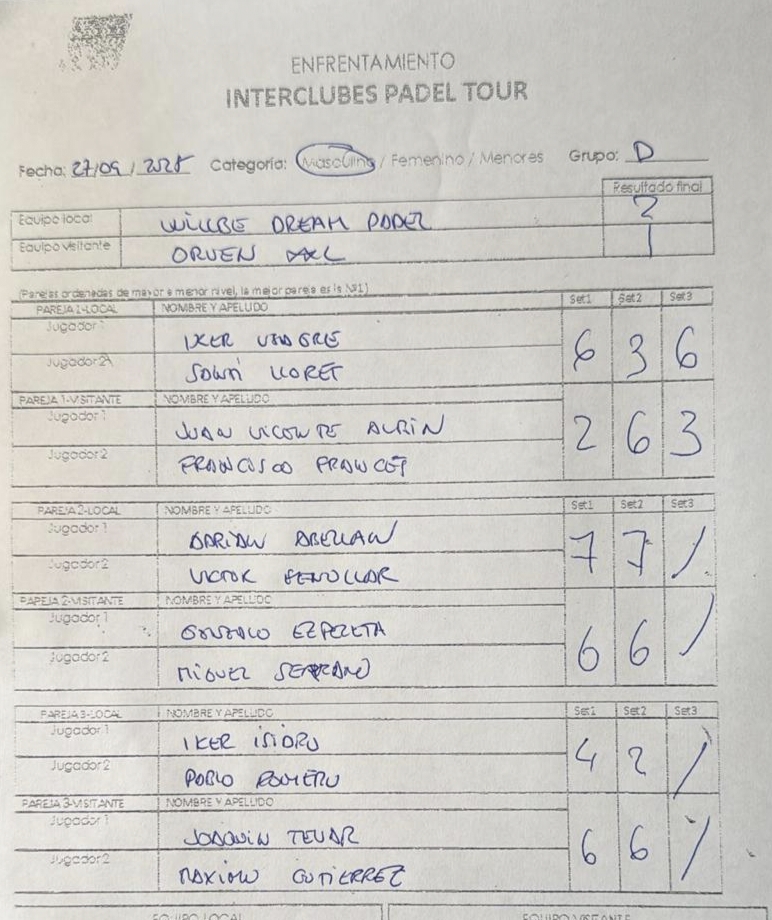 ENFRENTAMIENTO
INTERCLUBES PADEL TOUR
Fecha: 27/09/2025 Categoría: Masculino / Femenino / Menores Grupo: D
Resultado final
Equipo local WILLBE DREAM PADEL 2
Equipo visitante ORVEN 1
(Parejas ordenadas de mayor a menor nivel, la mejor pareja es la Nº1)
PAREJA 1-LOCAL NOMBRE Y APELLIDO Set1 Set2 Set3
Jugador 1 IKER VINAGRE
6 3 6
Jugador 2 LLORET
PAREJA 1-VISITANTE NOMBRE Y APELLIDO
Jugador 1 JUAN VICENTE
2 6 3
Jugador 2 FRANCISCO FRANCET
PAREJA 2-LOCAL NOMBRE Y APELLIDO Set1 Set2 Set3
Jugador 1 DARIAN ABELLAN
7 7 /
Jugador 2 VICTOR FENOLLAR
PAREJA 2-VISITANTE NOMBRE Y APELLIDO
Jugador 1 GONZALO EZPELETA
6 6 /
Jugador 2 MIGUEL SERRANO
PAREJA 3-LOCAL NOMBRE Y APELLIDO Set1 Set2 Set3
Jugador 1 IKER ISIDRO
4 2 /
Jugador 2 PABLO ROMERO
PAREJA 3-VISITANTE NOMBRE Y APELLIDO
Jugador 1 JOAQUIN TEVAR
6 6 /
Jugador 2 MAXIMO GUTIERREZ
EQUIPO LOCAL EQUIPO VISITANTE